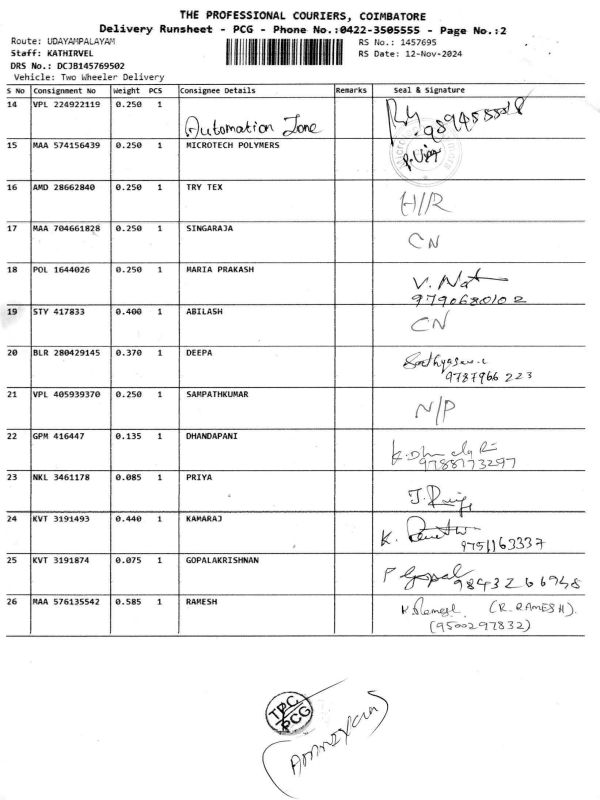 THE PROFESSIONAL COURIERS, COIMBATORE
Delivery Runsheet - PCG - Phone No.:0422-3505555 - Page No.:2
Route: UDAYAMPALAYAM RS No.: 1457695
Staff: KATHIRVEL RS Date: 12-Nov-2024
DRS No.: DCJB145769502
Vehicle: Two Wheeler Delivery
S No Consignment No Weight PCS Consignee Details Remarks Seal & Signature
14 VPL 224922119 0.250 1 Automation Zone
15 MAA 574156439 0.250 1 MICROTECH POLYMERS
16 AMD 28662840 0.250 1 TRY TEX H/R
17 MAA 704661828 0.250 1 SINGARAJA CN
18 POL 1644026 0.250 1 MARIA PRAKASH V. Nat
9790680102
19 STY 417833 0.400 1 ABILASH CN
20 BLR 280429145 0.370 1 DEEPA
9787966 223
21 VPL 405939370 0.250 1 SAMPATHKUMAR N/P
22 GPM 416447 0.135 1 DHANDAPANI
9788173297
23 NKL 3461178 0.085 1 PRIYA
24 KVT 3191493 0.440 1 KAMARAJ K.
9751163337
25 KVT 3191874 0.075 1 GOPALAKRISHNAN P Gopal 9843266948
26 MAA 576135542 0.585 1 RAMESH K Ramesh (R.RAMESH).
(9500297832)
TPC
PCG